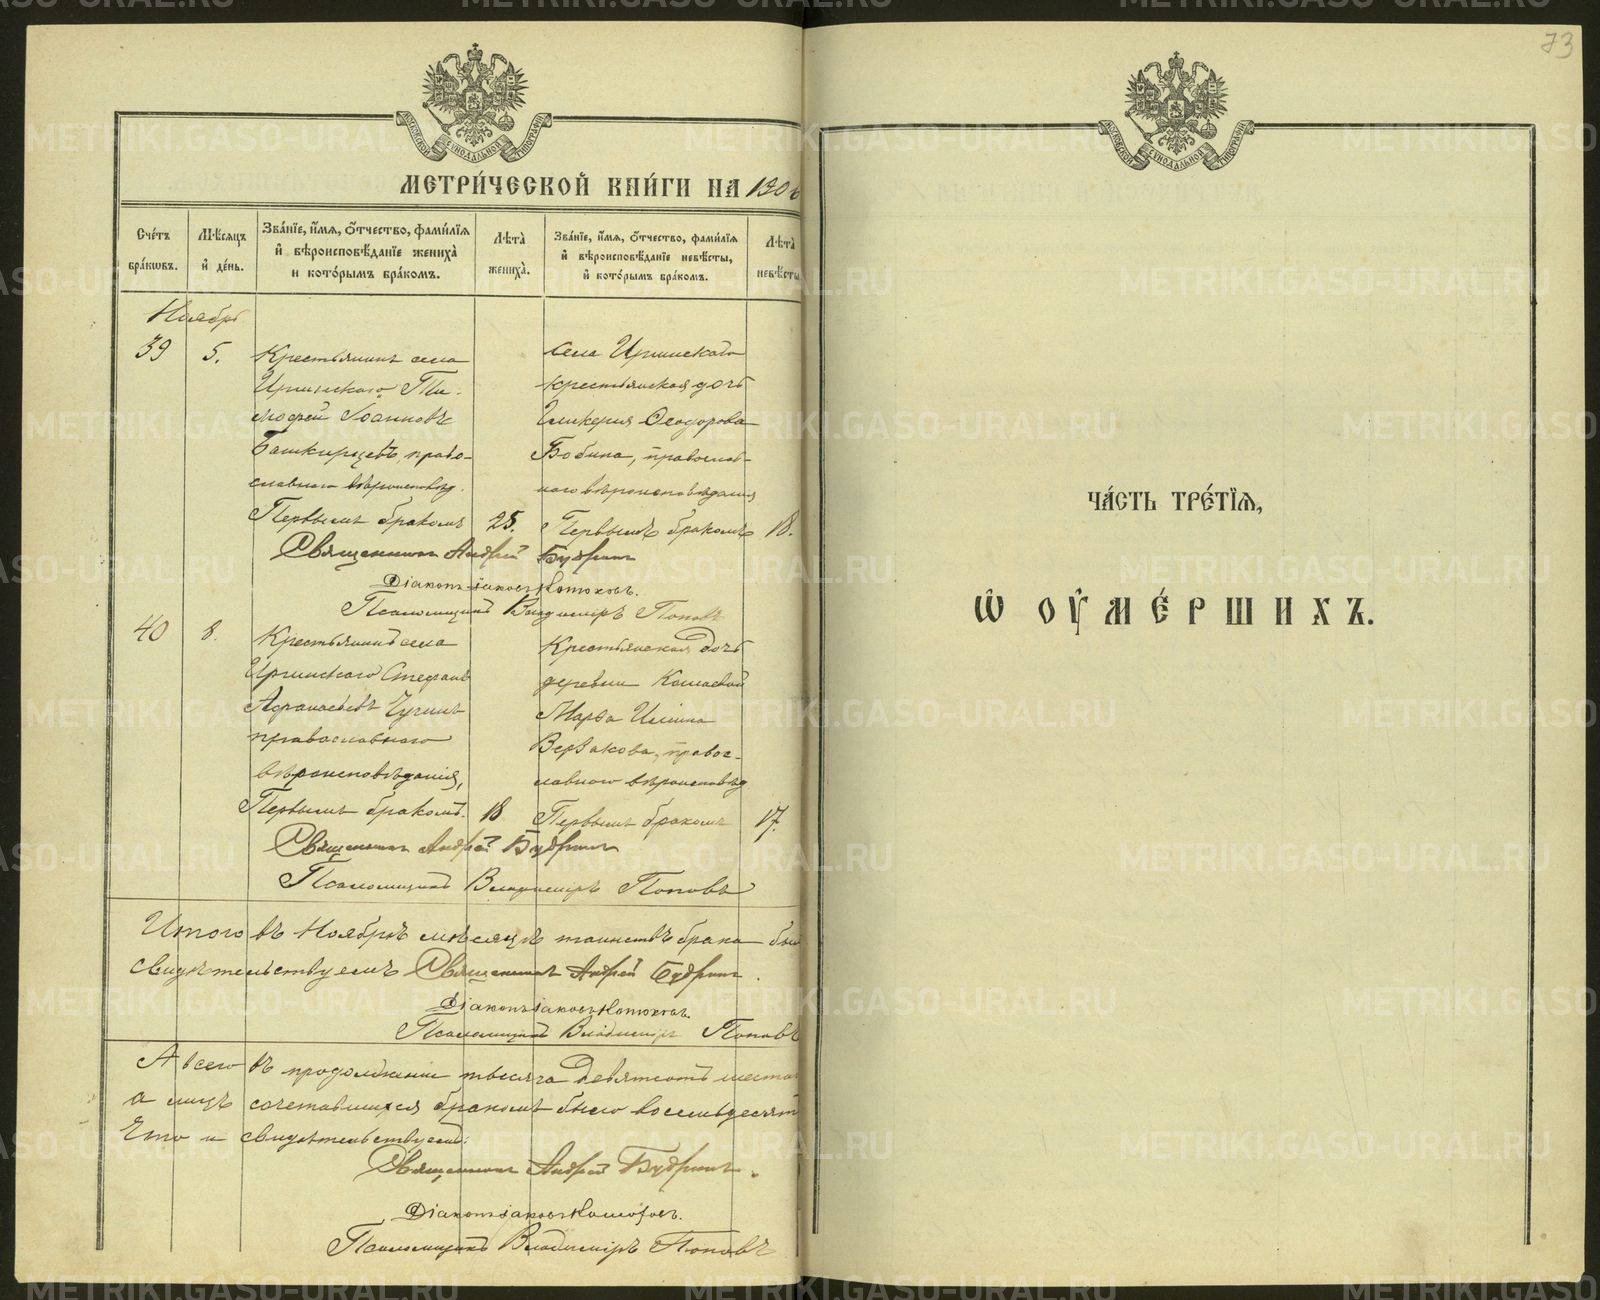 73
МОСКОВСКОЙ СѴНОДАЛЬНОЙ ТИПОГРАФІИ
МОСКОВСКОЙ СѴНОДАЛЬНОЙ ТИПОГРАФІИ
МЕТРИ́ЧЕСКОЙ КНИ́ГИ НА 190
Сче́тъ бра́кѡвъ.
Мѣ́сяцъ и҆ де́нь.
Зва́нїе, и҆́мѧ, ѻ҆́тчество, фами́лїѧ
и҆ вѣроисповѣ́данїе жениха̀
и кото́рымъ бра́комъ.
Лѣта̀ жениха̀.
Зва́нїе, и҆́мѧ, ѻ҆́тчество, фами́лїѧ
и҆ вѣроисповѣ́данїе невѣ́сты,
и҆ кото́рымъ бра́комъ.
Лѣта̀ невѣ́сты
Ноябрь
39
5.
Крестьянинъ села
Иргинскаго Ти-
мофей Іоанновъ
Башкирцевъ, право-
славнаго вѣроисповѣд.
Первымъ бракомъ
25.
села Иргинскаго
крестьянская дочь
Гликерия Феодорова
Бобина, православ-
наго вѣроисповѣдания
Первымъ бракомъ
18.
Священникъ Андрей Будринъ
Діаконъ Іаковъ Хотюковъ.
Псаломщикъ Владиміръ Поповъ
40
8.
Крестьянинъ села
Иргинскаго Стефанъ
Афанасьевъ Чугинъ
православнаго
вѣроисповѣданія,
Первымъ бракомъ.
18
Крестьянская дочь
деревни
Марѳа Илііна
православнаго вѣроисповѣд
Первымъ бракомъ
17.
Священникъ Андрей Будринъ
Псаломщикъ Владиміръ Поповъ
Итого въ Ноябрѣ мѣсяцѣ таинствъ брака
свидѣтельствуемъ Священникъ Андрей Будринъ.
Діаконъ Іаковъ Хотюковъ.
Псаломщикъ Владиміръ Поповъ
А всего въ продолженіи тысяча девятсотъ шесто
а лицъ сочетавшихся бракомъ было восемьдесятъ
Что и свидѣтельствуемъ:
Священникъ Андрей Будринъ.
Діаконъ Іаковъ Хотюковъ.
Псаломщикъ Владиміръ Поповъ
ЧА́СТЬ ТРЕ́ТЇѦ,
Ѡ҆ ОУ҆МЕ́РШИХЪ.
METRIKI.GASO-URAL.RU